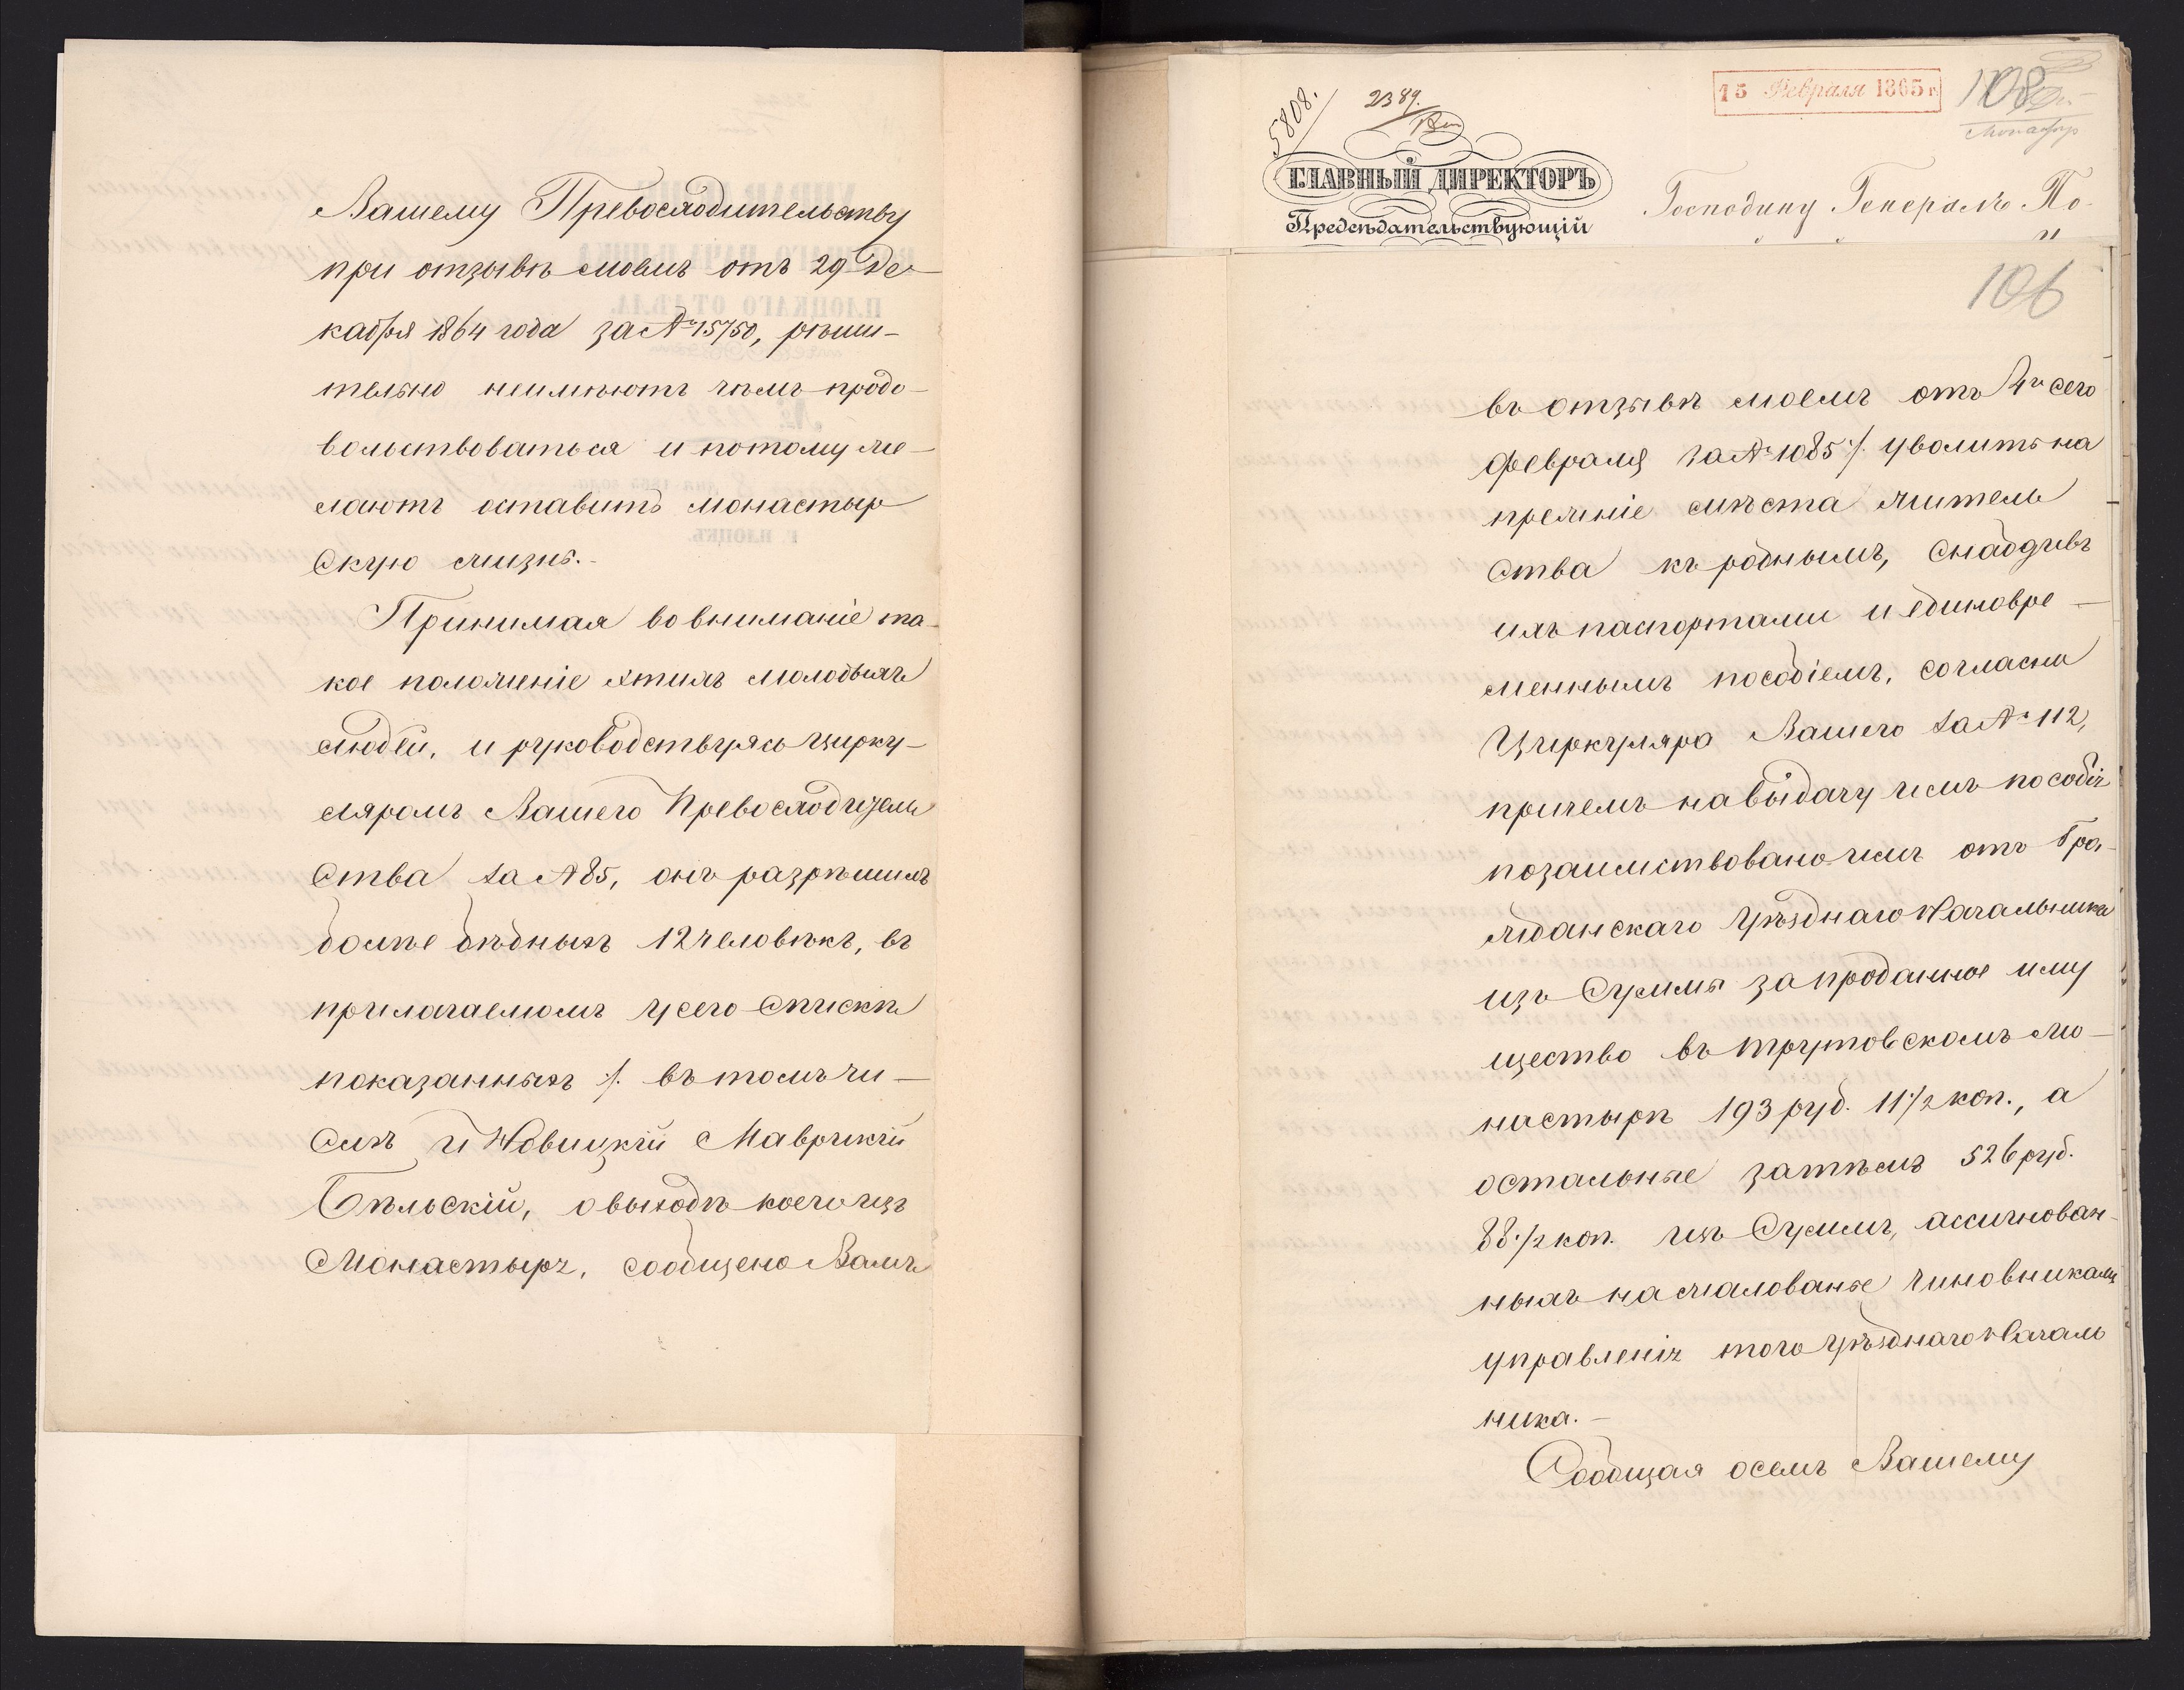 Вашему Превосходительству
при отзывѣ моемъ отъ 29 Де-
кабря 1864 года за № 15750, рѣши-
тельно неимѣютъ чѣмъ продо-
вольствоваться и потому же-
лаютъ оставить монастыр
скую жизнь.-
Принимая во вниманіе та-
кое положеніе этихъ молодыхъ
людей, и руководствуясь цирку-
ляромъ Вашего Превосходитель
ства за № 85, онъ разрѣшилъ
болѣе бѣдныхъ 12 человѣкъ, въ
прилагаемомъ у сего спискѣ
показанныхъ ·/. въ томъ чи-
слѣ и Новицкій Маврикій
Бѣльскій, о выходѣ коего изъ
Монастыря, сообщено Вамъ
5808.
2389.
15 Февраля 1865 г.
108
ГЛАВНЫЙ ДИРЕКТОРЪ
Предсѣдательствующій
Господину Генералъ По-
106
въ отзывѣ моемъ отъ 4го сего
февраля за № 1085 ·/. уволить на
прежніе мѣста житель
ства къ роднымъ, снабдивъ
ихъ паспортами и единовре-
меннымъ пособіемъ, согласно
Циркуляра Вашего за № 112,
причемъ на выдачу имъ пособія
позаимствовано имъ отъ Гра-
жданскаго Уѣзднаго Начальника
изъ Суммы за проданное иму
щество въ Трутовскомъ Мо-
настырѣ 193 руб. 11 1/2 коп., а
остальные затѣмъ 526 руб.
88 1/2 коп. изъ Суммъ, ассигнован-
ныхъ на жалованье чиновникамъ
управленія того Уѣзднаго Началь
ника.-
Сообщая о семъ Вашему